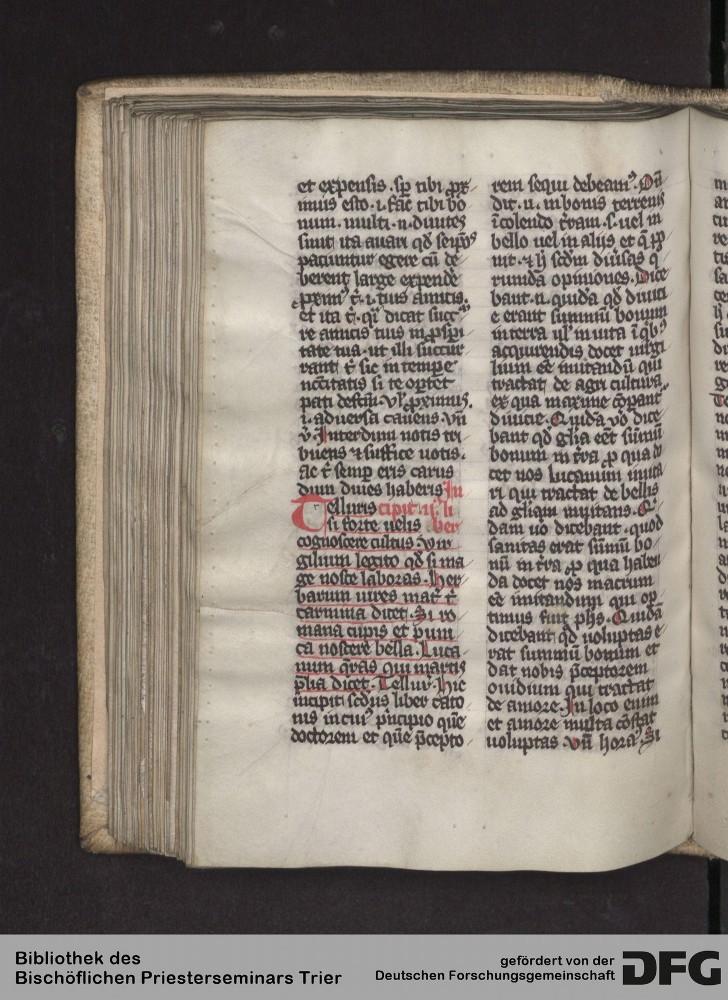 et expensis .sp̄ tibi ꝓx
imus esto .i. fac̄ tibi bo
num. multi .n. diuites
sunt ita auari qd̄ seip̄os
paciuntur egere cū de
berent large expende
ꝓxim⁹ t̄ .i. tuis amicis.
et ita t̄. qi dicat succ̄
re amicis tuis in ꝓsꝑi
tate tua .ut illi succur
rant t̄ sic in tempore
nc̄citatis si te oportet
pati .ꝓximus.
.i. aduersa cauens. Vn̄
v̄. Interdum notis tri
buens ⁊ suffice uotis.
ac t̄ semꝑ eris carus
dum diues haberis In
Telluris cipit ij⁹ li
si forte uelis ber
cognoscere cultus. Vir
gilium legito qd̄ si ma
ge nosse laboras. Her
barum uires mac̄ t̄
carmina dicet. Si ro
mana cupis et puni
ca noscere bella. Luca
num q̄ras qui martis
p̄lia dicet. Tellur⁹. Hic
incipit scd̄us liber cato
nis in cui⁹ pncipio que
doctorem et que p̄cepto
rem sequi debeam⁹. Qn̄
dit .n. in bonis terrenis
ī colendo t̄ram .s. uel in
bello uel in alijs et
uit. ⁊ h̄ scdm diuisas q
rumda opiniones. Dice
bant .n. quida qd̄ diuici
e erant summū bonum
in terra ul in uita ī qb⁹
acquirendis docet uirgi
lium ee imitandū qui
tractat de agri cultura
ex qua maxime cōpant̄
diuicie. Quida vo dice
bant qd̄ glia eēt sūmū
bonum in t̄ra ꝓ qua do
cet nos lucanum imita
ri qui tractat de bellis
ad gliam inuitans. Q
dam uo dicebant .quod
sanitas erat sūmū bo
nū in t̄ra ꝓ qua haben
da docet nos macrum
ee imitandum qui op
timus fuit phs. Quidā
dicebant qd̄ uoluptas e
rat summū bonum et
dat nobis p̄ceptorem
ouidium qui tractat
de amore. In loco enim
et amore multa cōstat
uoluptas. Vn̄ hora⁹. Si
Bibliothek des
Bischöflichen Priesterseminars Trier
gefördert von der
Deutschen Forschungsgemeinschaft
DFG